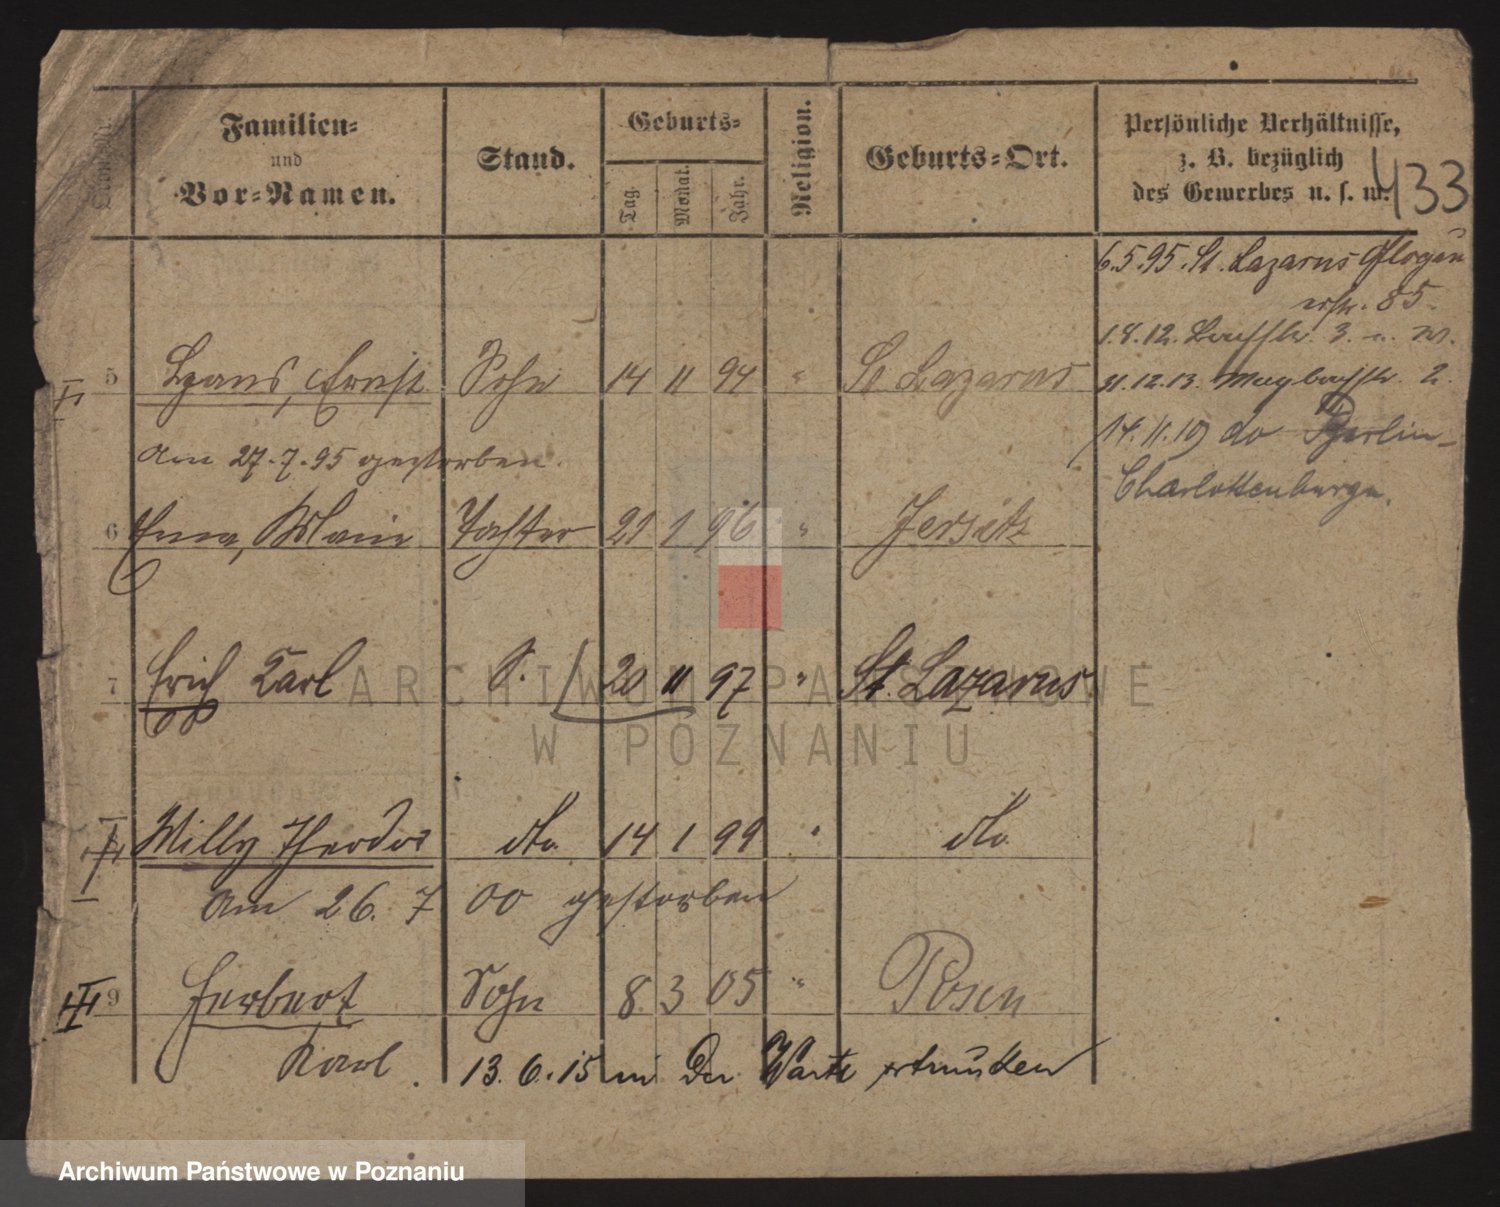 433
Familien=
und
Vor=Namen.
Stand.
Geburts=
Tag.
Monat.
Jahr.
Religion.
Geburts=Ort.
Persönliche Verhältnisse,
z. B. bezüglich
des Gewerbes u. s. w.
6.5.95. St. Lazarus Glogau
erstr. 85.
18.12. 3. u. W.
31.12.13. Maybachstr. 2.
14.11.19 do Berlin-
Charlottenburg.
5 Ernst Sohn 14 11 94 " St Lazarus
Am 27.7.95 gestorben.
6 Erna, Marie Tochter 21 1 96 " Jersitz
7 Erich Karl S. 20 11 97 " St. Lazarus
Willy Theodor dto. 14 1 99 " dto.
Am 26. 7 00 gestorben
9 Herbert Sohn 8. 3 05 " Posen
Karl. 13.6.15 in der Warte ertrunken
ARCHIWUM PAŃSTWOWE
W POZNANIU
Archiwum Państwowe w Poznaniu